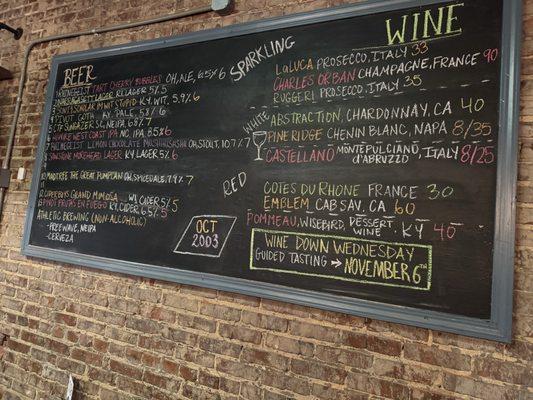 BEER
TART CHERRY BUBBLES OH, ALE, 6.5% 6
LAGER 5% 5
WIT STUPID KY, WIT, 5.9% 6
GOTH KY, PALE, 5.8% 6
SC, NEIPA, 6.8% 7
WEST COAST IPA MO, IPA, 8.5% 6
LEMON CHOCOLATE OH, STOUT, 10.7% 7
MOREHEAD LAGER KY LAGER 5% 6
MADTREE THE GREAT PUMPCAN OH, SPICED ALE, 7.9% 7
GRAND MIMOSA WI, CIDER 5% 5
PINOT EN FUEGO KY, CIDER 6.5% 5
ATHLETIC BREWING (NON-ALCOHOLIC)
- FREEWAVE, NEIPA
- CERVEZA
OCT
2003
WINE
SPARKLING
LALUCA PROSECCO, ITALY 33
CHARLES ORBAN CHAMPAGNE, FRANCE 90
RUGGERI PROSECCO, ITALY 35
WHITE
ABSTRACTION, CHARDONNAY, CA 40
PINE RIDGE CHENIN BLANC, NAPA 8/35
CASTELLANO MONTEPULCIANO D'ABRUZZO, ITALY 8/25
RED
COTES DU RHONE FRANCE 30
EMBLEM CAB SAV, CA 60
POMMEAU, WISEBIRD, DESSERT WINE, KY 40
WINE DOWN WEDNESDAY
GUIDED TASTING → NOVEMBER 6TH